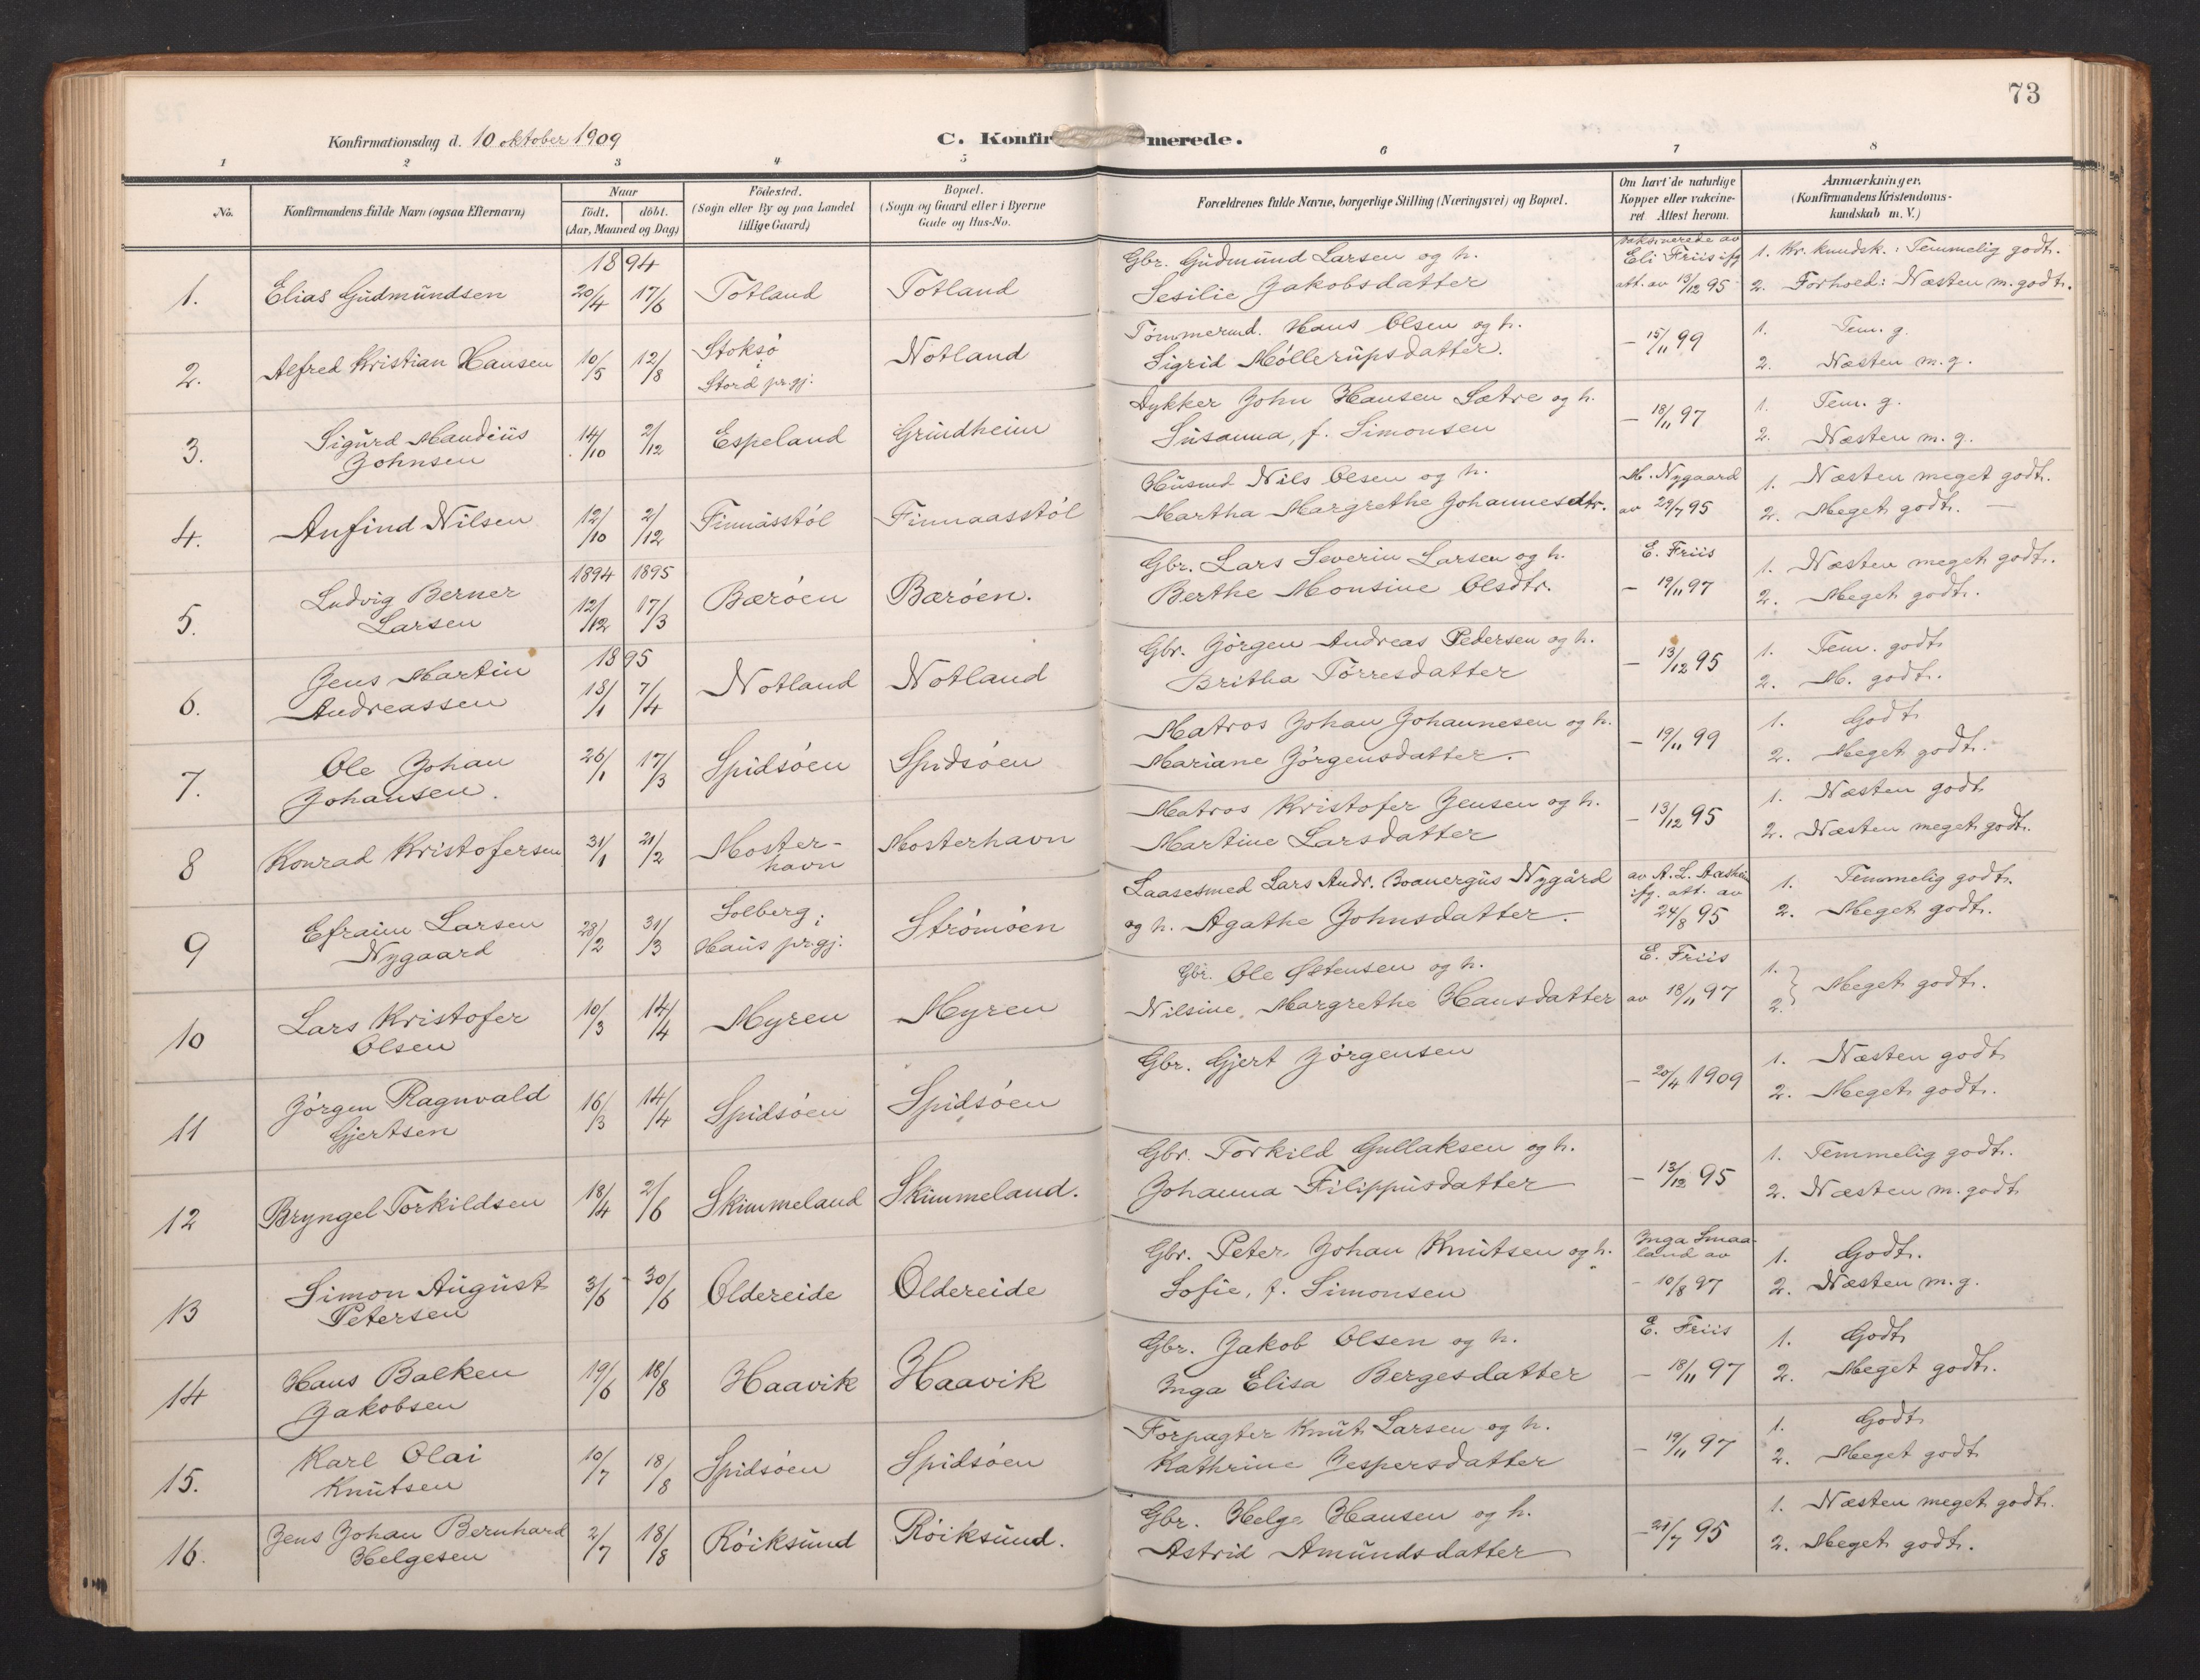 73
Konfirmationsdag d. 10 oktober 1909
C. Konfir merede.
1 2 3 4 5 6 7 8
No.
Konfirmandens fulde Navn (ogsaa Efternavn)
Naar
födt. döbt.
(Aar, Maaned og Dag)
Födested.
(Sogn eller By og paa Landet
tillige Gaard)
Bopæl.
(Sogn og Gaard eller i Byerne
Gade og Hus-No.
Forældrenes fulde Navne, borgerlige Stilling (Næringsvei) og Bopæl.
Om havt de naturlige
Kopper eller vakcine-
ret Attest herom.
Anmærkninger.
(Konfirmandens Kristendoms-
kundskab m. V.)
1894
1. Elias Gudmundsen 20/4 17/6 Totland Totland
Gbr. Gudmund Larsen og h.
Sesilie Jakobsdatter
vaksinerede av
Eli Friis ifg
att. av 13/12 95
1. Kr. kundsk.: Temmelig godt.
2. Forhold: Næsten m. godt.
2. Alfred Kristian Hansen 10/5 12/8
Stoksö
i
Stord pr.gj.
Notland
Tömmermd. Hans Olsen og h.
Sigrid Möllerupsdatter.
- 15/11 99
1. Tem. g.
2. Næsten m. g.
3. Sigurd Mandeius
Johnsen
14/10 2/12 Espeland Grindheim
Dykker John Hansen Sætre og h.
Susanna, f. Simonsen
- 18/11 97
1. Tem. g.
2. Næsten m. g.
4. Anfind Nilsen 12/10 2/12 Finnåsstöl Finnaasstöl
Husmd Nils Olsen og h.
Martha Margrethe Johannesdtr.
M. Nygaard
av 29/7 95
1. Næsten meget godt.
2. Meget godt. —
1894 1895
5. Ludvig Berner
Larsen
12/12 17/3 Bæröen Bæröen.
Gbr. Lars Severin Larsen og h.
Berthe Monsine Olsdtr.
E. Friis
- 19/11 97
1. Næsten meget godt.
2. Meget godt.
1895
6. Jens Martin
Andreassen
13/1 7/4 Notland Notland
Gbr. Jörgen Andreas Pedersen og h.
Britha Törresdatter
- 13/12 95
1. Tem. godt
2. M. godt.
7. Ole Johan
Johansen.
26/1 17/3 Spidsöen Spidsöen
Matros Johan Johannesen og h.
Mariane Jörgensdatter.
- 19/11 99
1. Godt
2. Meget godt.
8 Konrad Kristofersen 31/1 21/2
Moster-
havn
Mosterhavn
Matros Kristofer Jensen og h.
Martine Larsdatter
- 13/12 95
1. Næsten godt
2. Næsten meget godt.
9 Efraim Larsen
Nygaard
28/2 31/3
Solberg i
Haus pr.gj.
Strömöen
Laasesmed Lars Andr. Boanergus Nygård
og h. Agathe Johnsdatter.
av A. L.
ifg. att. av
24/8 95
1. Temmelig godt.
2. Meget godt.
10 Lars Kristofer
Olsen
10/3 14/4 Myren Myren
Gbr. Ole Østensen og h.
Nilsine Margrethe Hansdatter
E. Friis
av 18/11 97
1.
2. Meget godt.
11 Jörgen Ragnvald
Gjertsen
16/3 14/4 Spidsöen Spidsöen
Gbr. Gjert Jörgensen
- 20/4 1909
1. Næsten godt
2. Meget godt.
12 Bryngel Torkildsen 18/4 2/6 Skimmeland Skimmeland.
Gbr. Torkild Gullaksen og h.
Johanna Filippusdatter
- 13/12 95
1. Temmelig godt.
2. Næsten m. godt
13 Simon August
Petersen
3/6 30/6 Oldereide Oldereide
Gbr. Peter Johan Knutsen og h.
Sofie, f. Simonsen
Inga Smaa-
land av
- 10/8 97
1. Godt.
2. Næsten m. g.
14 Hans Balken
Jakobsen
19/6 18/8 Haavik Haavik
Gbr. Jakob Olsen og h.
Inga Elisa Bergesdatter
E. Friis
- 18/11 97
1. Godt
2. Meget godt.
15. Karl Olai
Knutsen
10/7 18/8 Spidsöen Spidsöen
Forpagter Knut Larsen og h.
Kathrine Jespersdatter
- 19/11 97
1. Godt
2. Meget godt
16. Jens Johan Bernhard
Helgesen
2/7 18/8 Röiksund Röiksund.
Gbr. Helge Hansen og h.
Astrid Amundsdatter
- 21/7 95
1. Næsten meget godt.
2. Meget godt.